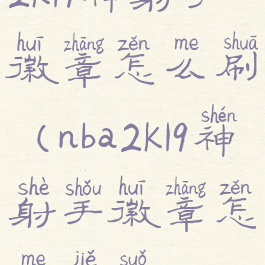 huī zhāng zěn me shuā
徽章怎么刷
shén
(nba2K19神
shè shǒu huī zhāng zěn
射手徽章怎
me jiě suǒ